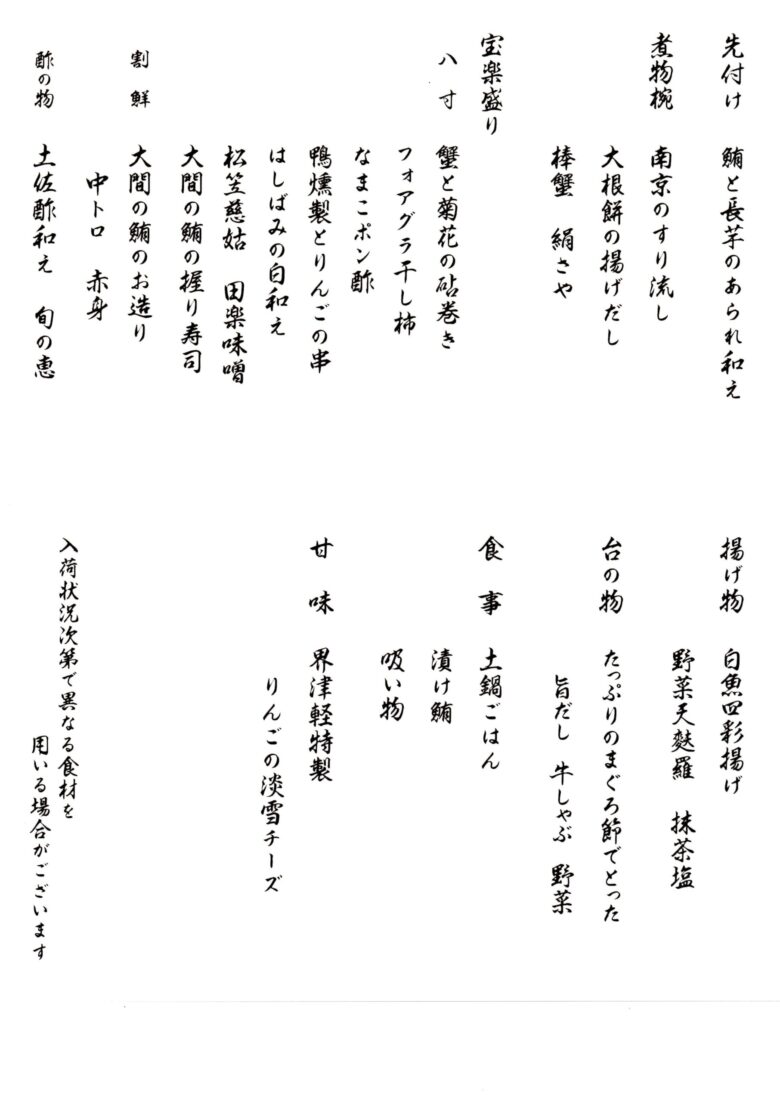 先付け　鮪と長芋のあられ和え
煮物椀　南京のすり流し
大根餅の揚げだし
棒蟹　絹さや
宝楽盛り
八寸　蟹と菊花の砧巻き
フォアグラ干し柿
なまこポン酢
鴨燻製とりんごの串
はしばみの白和え
松笠慈姑　田楽味噌
大間の鮪の握り寿司
割鮮　大間の鮪のお造り
中トロ　赤身
酢の物　土佐酢和え　旬の恵
揚げ物　白魚四彩揚げ
野菜天麩羅　抹茶塩
台の物　たっぷりのまぐろ節でとった
旨だし　牛しゃぶ　野菜
食事　土鍋ごはん
漬け鮪
吸い物
甘味　界津軽特製
りんごの淡雪チーズ
入荷状況次第で異なる食材を
用いる場合がございます